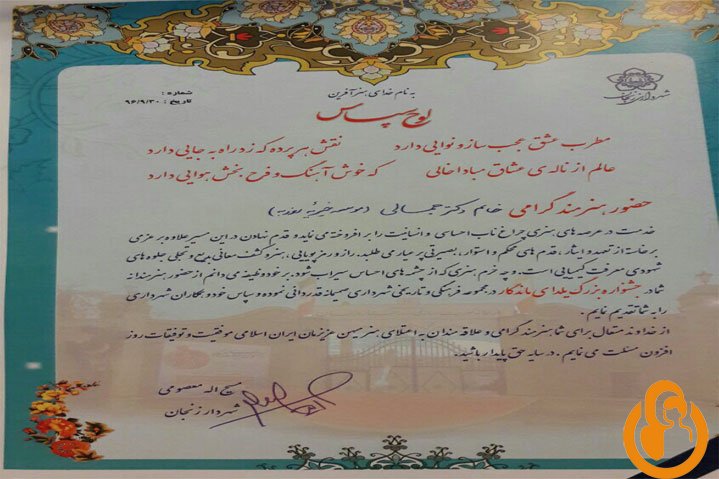 به نام خدای هنر آفرین
شماره :
تاریخ : ۹۶/۹/۳۰
شهرداری زنجان
لوح سپاس
مطرب عشق عجب ساز و نوایی دارد نقش هر پرده که زد راه به جایی دارد
عالم از ناله ی عشاق مبادا خالی که خوش آهنگ و فرح بخش هوایی دارد
حضور هنرمند گرامی خانم دکتر جمالی (موسسه خیریه مهدیه)
خدمت در عرصه های هنری چراغ ناب احساس و انسانیت را بر افروخته می نماید و قدم نهادن در این مسیر علاوه بر عزمی
برخاسته از تعهد و ایثار ، قدم های محکم و استوار، بصیرتی پربار می طلبد. راز و رمز پویایی، هنر و کشف معانی بدیع و تجلی جلوه های
شهودی معرفت کیمیایی است. و چه خرم هنری که از چشمه های احساس سیراب شود. بر خود وظیفه می دانم از حضور هنرمندانه
شما در جشنواره بزرگ یلدای ماندگار در مجموعه فرهنگی و تاریخی شهرداری صمیمانه قدردانی نموده و سپاس خود و همکاران شهرداری
را به شما تقدیم نمایم .
از خداوند متعال برای شما هنرمند گرامی و علاقه مندان به اعتلای هنر میهن عزیزمان ایران اسلامی موفقیت و توفیقات روز
افزون مسئلت می نمایم . در سایه حق پایدار باشید.
مسیح اله معصومی
شهردار زنجان